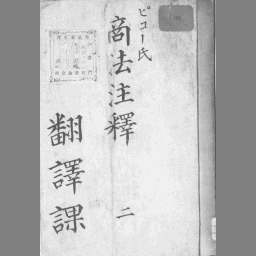 ピコー氏
商法注釋
二
翻譯課